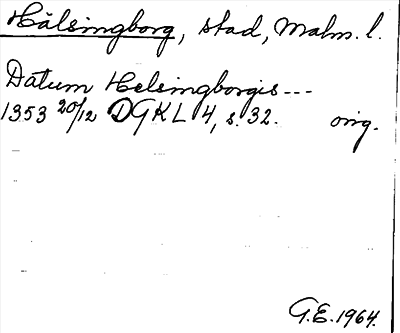 Hälsingborg, stad, Malm. l.
Datum Helsingborgis ---
1353 20/12 DGKL 4, s. 32. orig.
G.E. 1964.